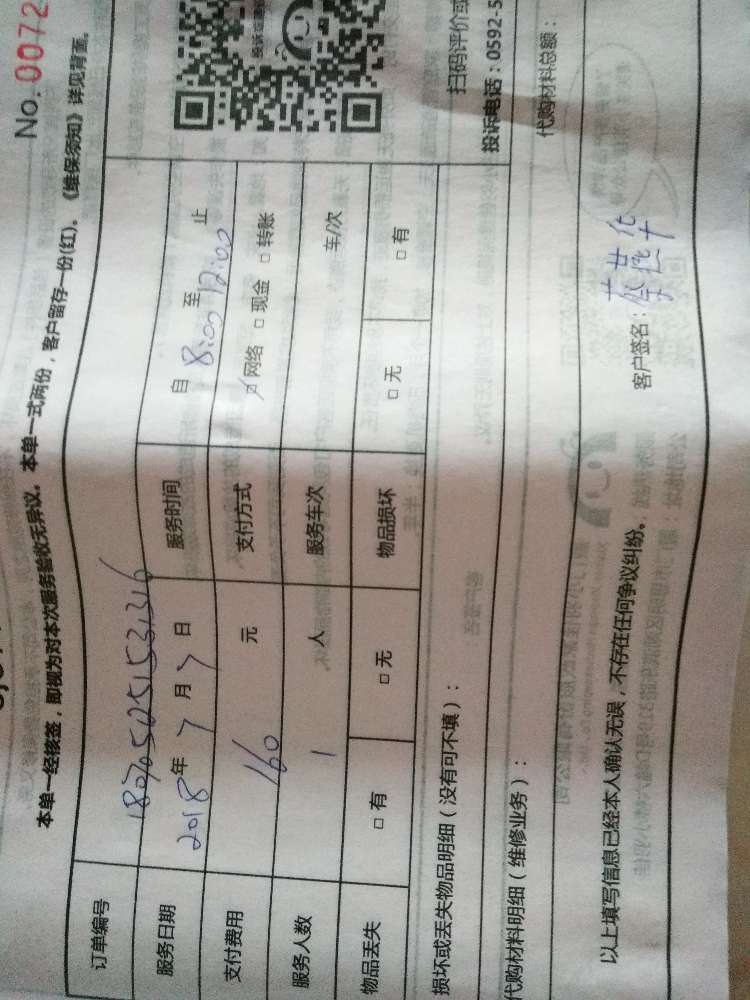 No. 0072
本单一经核签，即视为对本次服务验收无异议。本单一式两份，客户留存一份(红)。《维保须知》详见背面。
订单编号
服务日期 2018年7月7日 服务时间 自 8:00 至 12:00 止
支付费用 160 元 支付方式 ☑网络 □现金 □转账
服务人数 1 人 服务车次 车/次
物品丢失 □有 □无 物品损坏 □无 □有
损坏或丢失物品明细（没有可不填）：
扫码评价或
投诉电话：0592-5
代购材料明细（维修业务）：
代购材料总额：
以上填写信息已经本人确认无误，不存在任何争议纠纷。
客户签名：蔡燕华